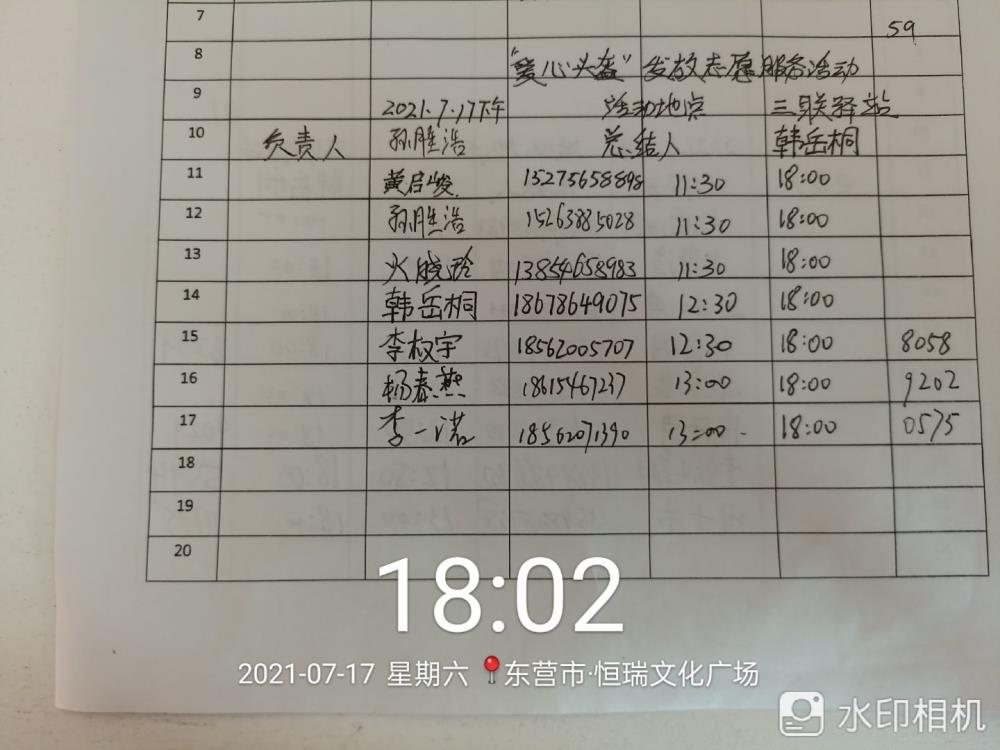 7 59
8 "爱心头盔"发放志愿服务活动
9 2021.7.17下午 活动地点 三联驿站
10 负责人 孙胜浩 总结人 韩岳桐
11 黄启峻 15275658898 11:30 18:00
12 孙胜浩 15263885028 11:30 18:00
13 火晓玲 13854658983 11:30 18:00
14 韩岳桐 18678649075 12:30 18:00
15 李权宇 18562005707 12:30 18:00 8058
16 杨春燕 18615467237 13:00 18:00 9202
17 李一诺 18562071390 13:00 18:00 0575
18
19
20
18:02
2021-07-17 星期六 东营市·恒瑞文化广场
水印相机